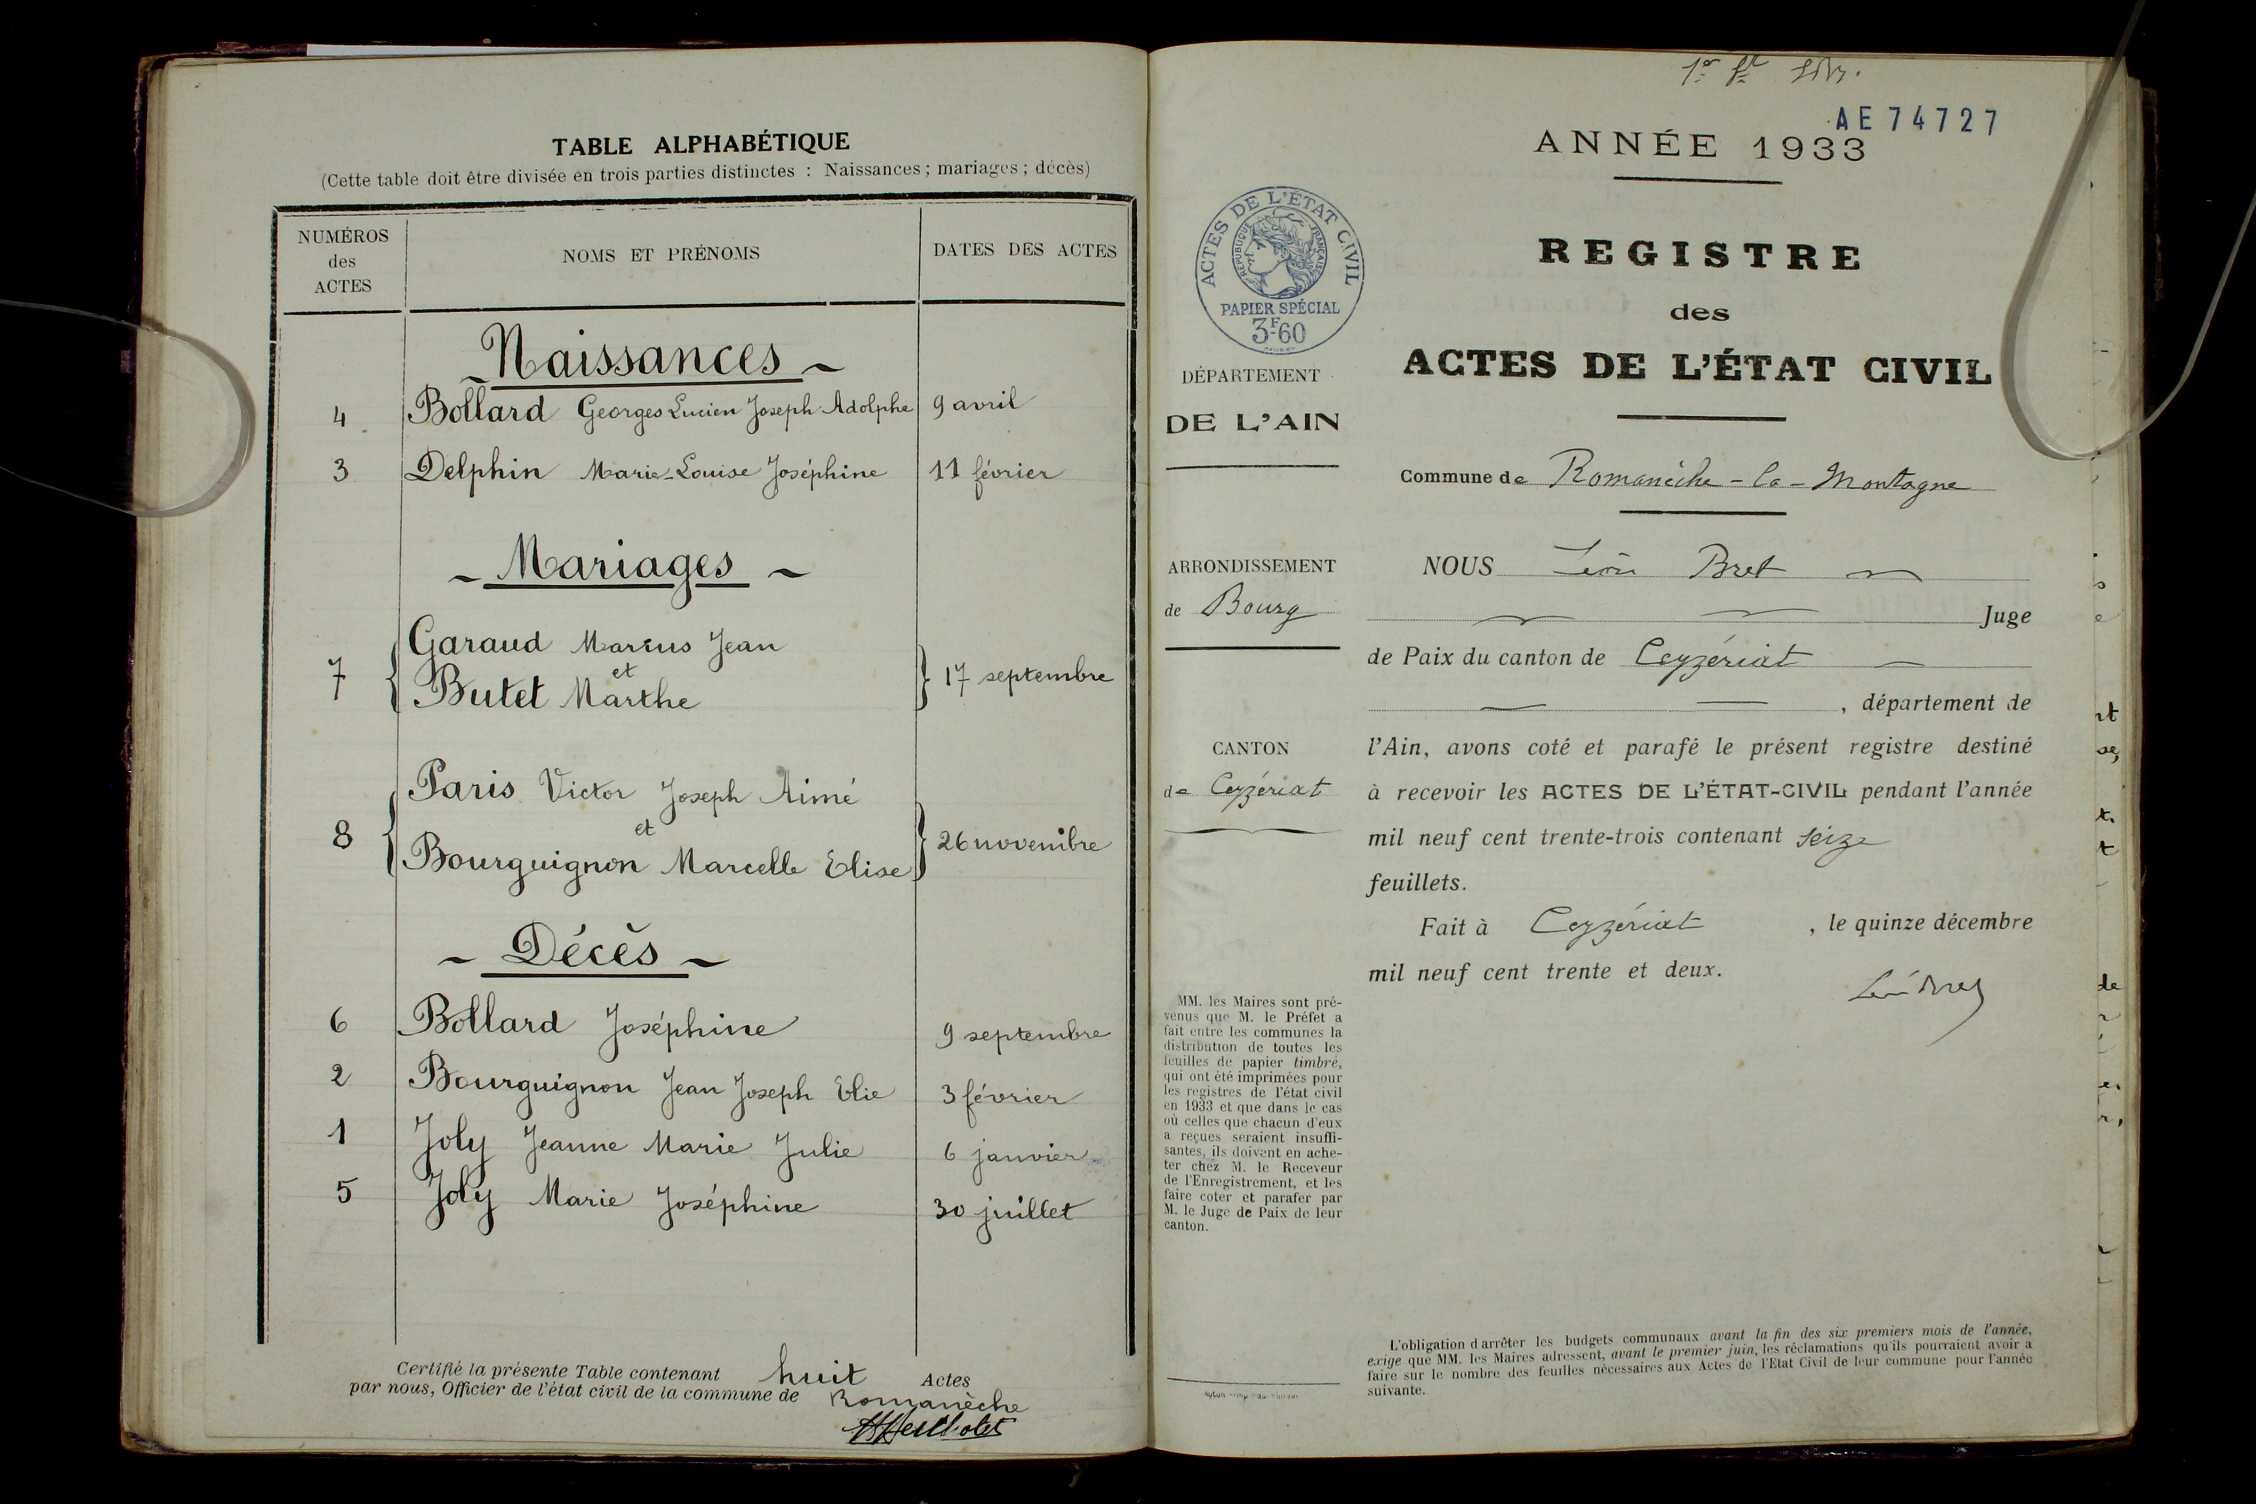 TABLE ALPHABÉTIQUE
(Cette table doit être divisée en trois parties distinctes : Naissances ; mariages ; décès)
NUMÉROS
des
ACTES
NOMS ET PRÉNOMS
DATES DES ACTES
Naissances
4 Bollard Georges Lucien Joseph Adolphe 9 avril
3 Delphin Marie-Louise Joséphine 11 février
Mariages
Garaud Marius Jean
7 et 17 septembre
Butet Marthe
Paris Victor Joseph Aimé
8 et 26 novembre
Bourguignon Marcelle Elise
Décès
6 Bollard Joséphine 9 septembre
2 Bourguignon Jean Joseph Elie 3 février
1 Joly Jeanne Marie Julie 6 janvier
5 Joly Marie Joséphine 30 juillet
Certifié la présente Table contenant huit Actes
par nous, Officier de l'état civil de la commune de Romanèche
AE 74727
ANNÉE 1933
ACTES DE L'ÉTAT CIVIL
RÉPUBLIQUE FRANÇAISE
PAPIER SPÉCIAL
3F60
DÉPARTEMENT
DE L'AIN
ARRONDISSEMENT
de Bourg
CANTON
de Ceyzériat
MM. les Maires sont pré-
venus que M. le Préfet a
fait entre les communes la
distribution de toutes les
feuilles de papier timbré,
qui ont été imprimées pour
les registres de l'état civil
en 1933 et que dans le cas
où celles que chacun d'eux
a reçues seraient insuffi-
santes, ils doivent en ache-
ter chez M. le Receveur
de l'Enregistrement, et les
faire coter et parafer par
M. le Juge de Paix de leur
canton.
REGISTRE
des
ACTES DE L'ÉTAT CIVIL
Commune de Romanèche-la-Montagne
NOUS Léon Bret
Juge
de Paix du canton de Ceyzériat
, département de
l'Ain, avons coté et parafé le présent registre destiné
à recevoir les ACTES DE L'ÉTAT-CIVIL pendant l'année
mil neuf cent trente-trois contenant seize
feuillets.
Fait à Ceyzériat , le quinze décembre
mil neuf cent trente et deux.
L'obligation d'arrêter les budgets communaux avant la fin des six premiers mois de l'année,
exige que MM. les Maires adressent, avant le premier juin, les réclamations qu'ils pourraient avoir à
faire sur le nombre des feuilles nécessaires aux Actes de l'Etat Civil de leur commune pour l'année
suivante.